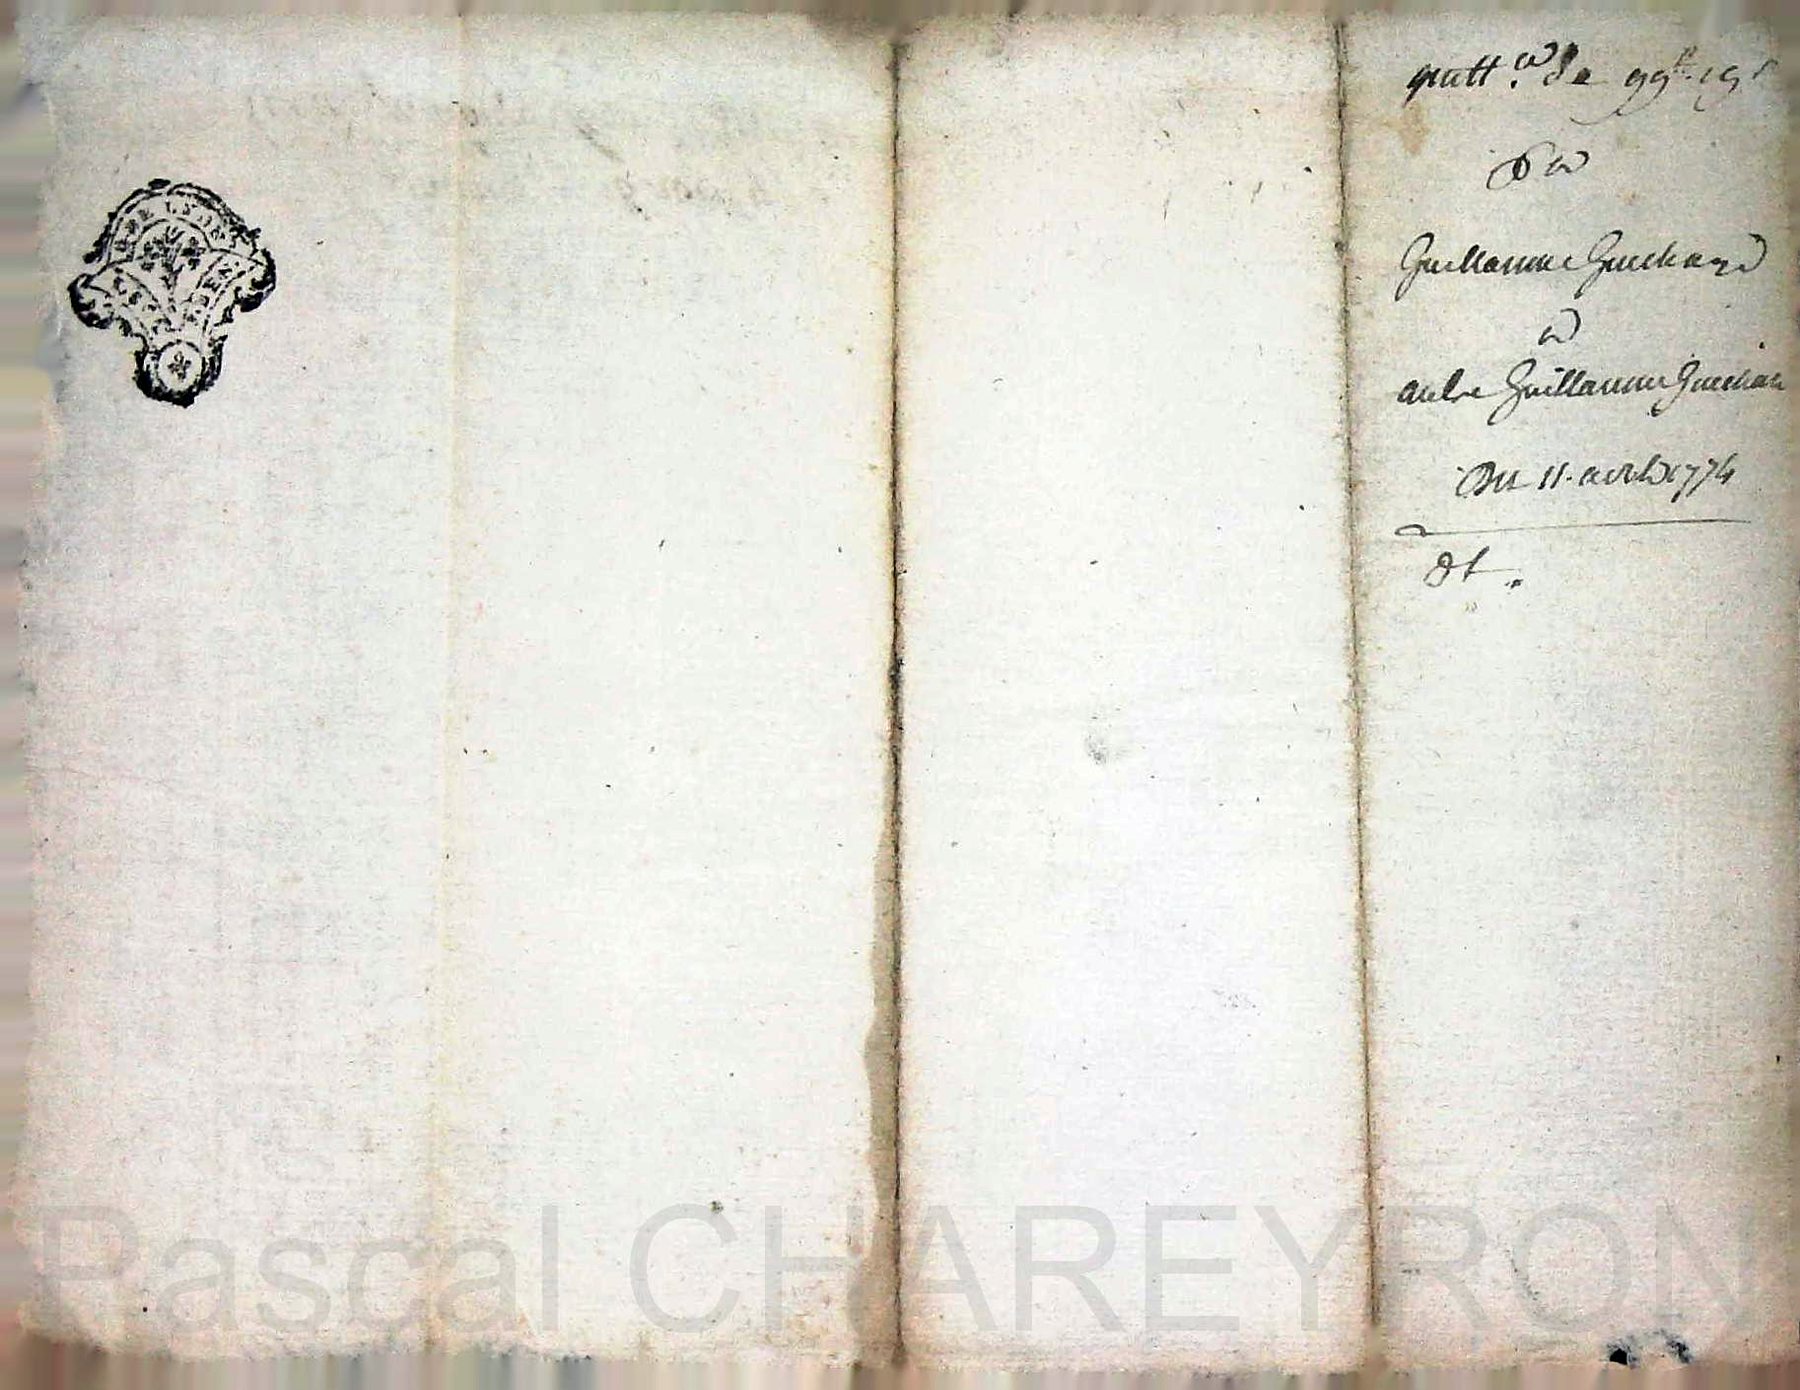 quitt.ce de 99# 19s
Par
Guillaume Guichard
a
autre Guillaume Guichar
Du 11. avril 1774
dt.
Pascal CHAREYRON